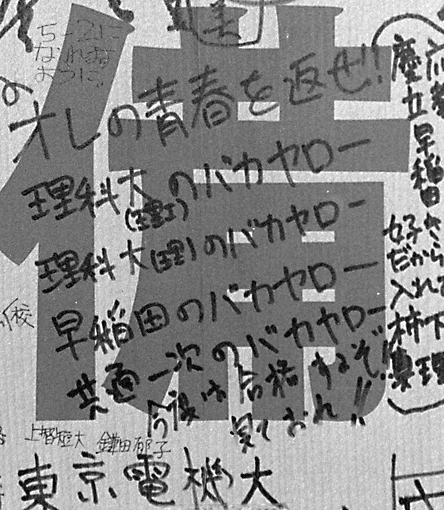 美
オレの青春を返せ!!
理科大(理工)のバカヤロー
理科大(理)のバカヤロー
早稲田のバカヤロー
共通一次のバカヤロー
今度は合格するぞ!!
見ておれ!!
慶立早稲田
好きだから入れて
校
上智短大 鎌田郁子
東京電機大